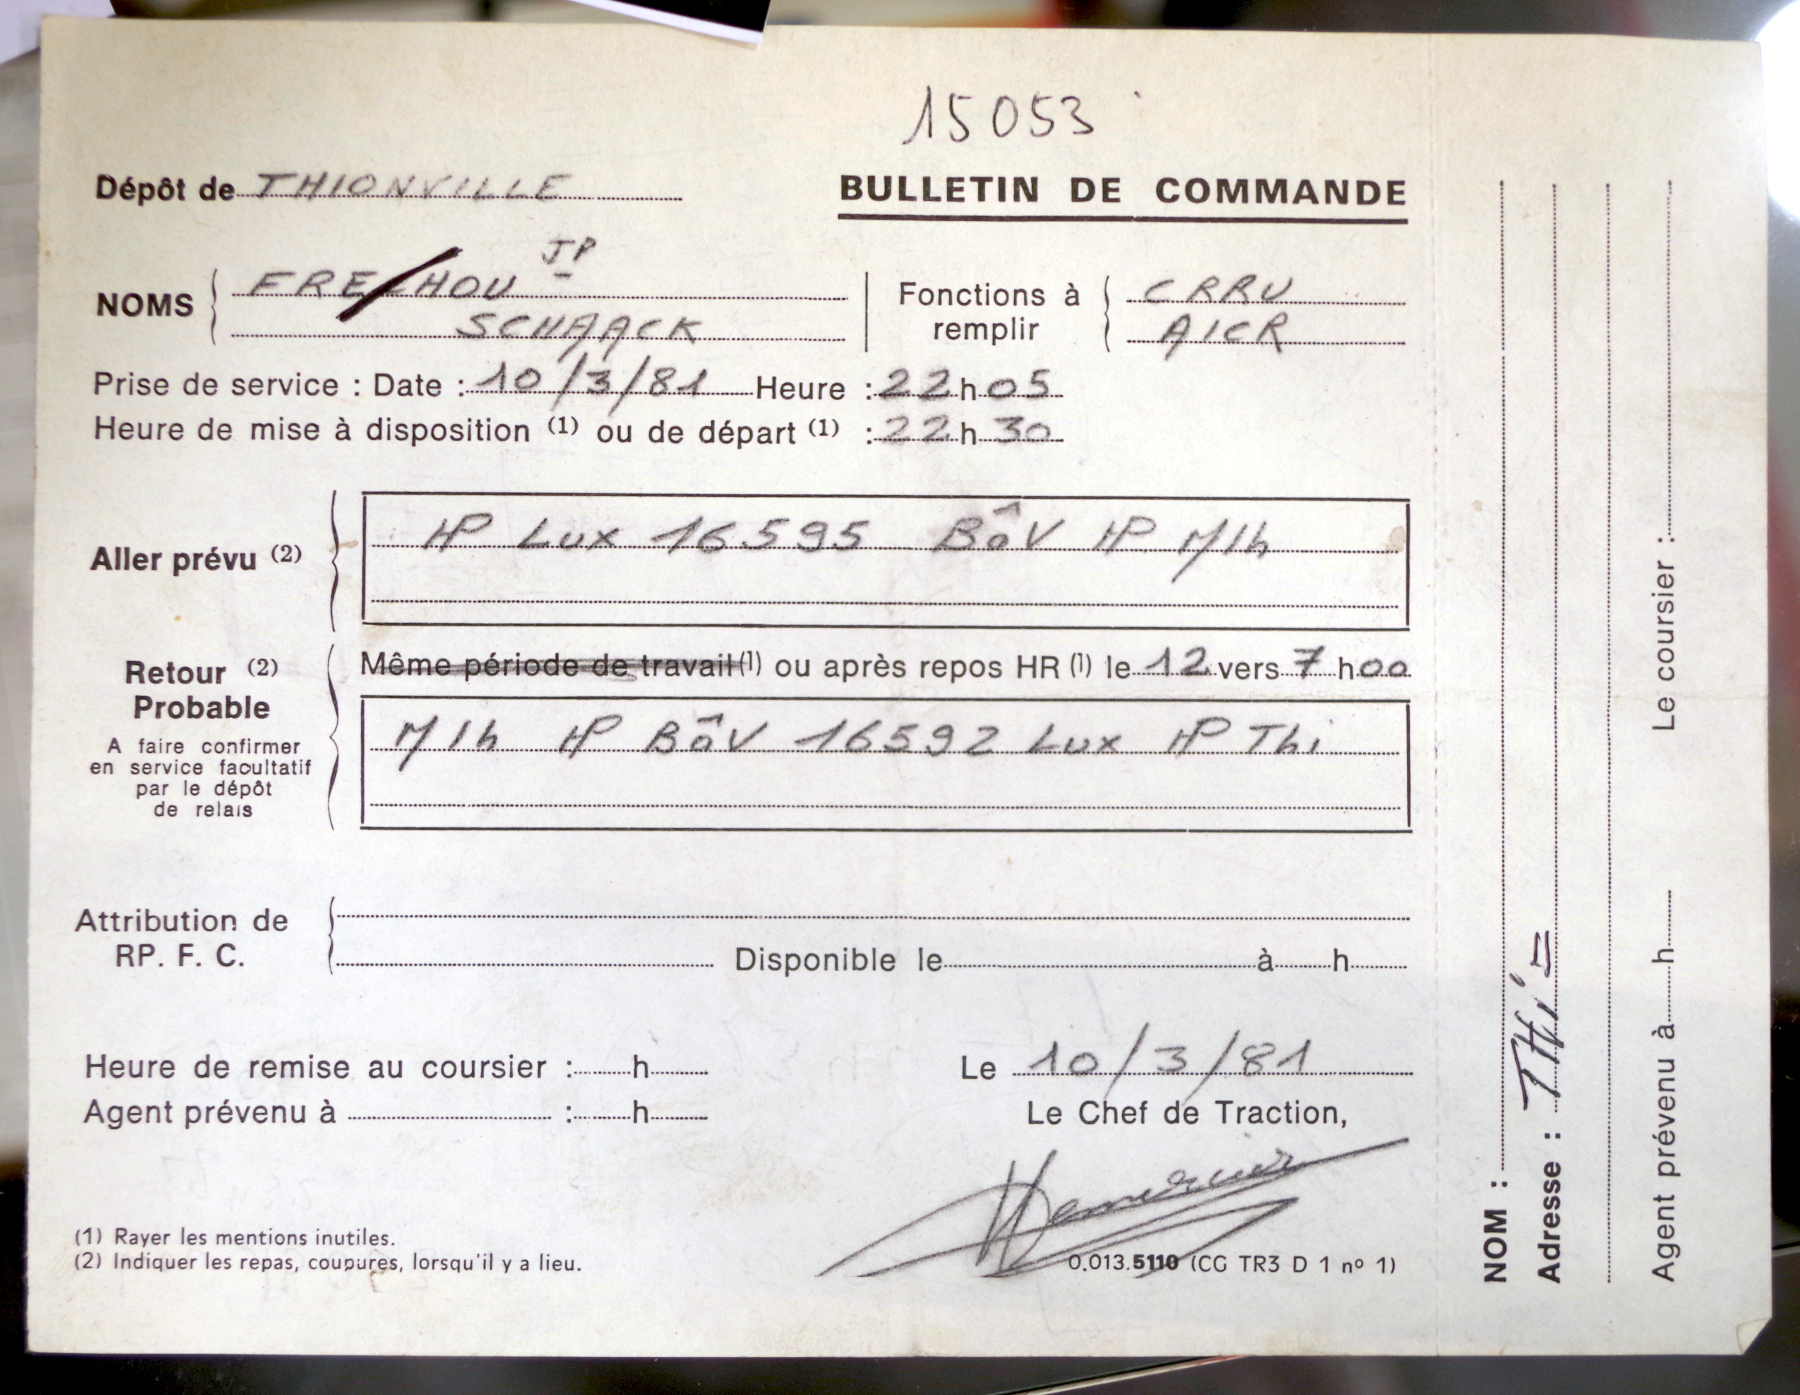 15053
Dépôt de THIONVILLE
BULLETIN DE COMMANDE
NOMS
JP
SCHAACK
Fonctions à remplir
CRRU
AICR
Prise de service : Date : 10/3/81 Heure : 22 h 05
Heure de mise à disposition (1) ou de départ (1) : 22 h 30
Aller prévu (2)
HP Lux 16595 BâV HP Mlh
Retour (2)
Probable
A faire confirmer
en service facultatif
par le dépôt
de relais
Même période de travail (1) ou après repos HR (1) le 12 vers 7 h 00
Mlh HP BâV 16592 Lux HP Thi
Attribution de
RP. F. C.
Disponible le à h
Heure de remise au coursier : h
Agent prévenu à : h
Le 10/3/81
Le Chef de Traction,
(1) Rayer les mentions inutiles.
(2) Indiquer les repas, coupures, lorsqu'il y a lieu.
0.013.5110 (CG TR3 D 1 nº 1)
NOM :
Adresse : THi
Agent prévenu à h Le coursier :